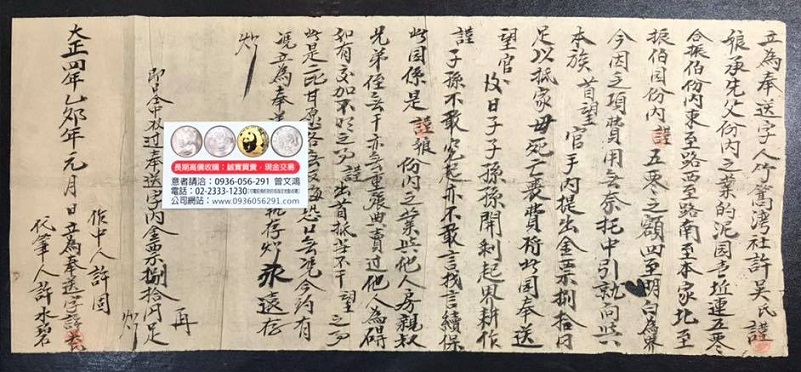 立為奉送字人竹篙灣社許吳氏謹
娘承先父份內之業的泥園壱坵連五零
合振伯份內東至路西至路南至本家北至
振伯園份內謹五零之額四至明白為界
今因乏項費用無奈托中引就向與
本族首望官手內提出金票捌拾円
足以抵家母死亡喪費將此園奉送
望官後日子子孫孫開剁起界耕作
謹子孫不敢究起亦不敢言找言續保
此園係是謹娘份內之業與他人房親叔
兄弟侄無干亦無重張典賣过他人為碍
如有交加不明之事謹出首抵当不干望之事
此是二比甘愿各無反悔恐口無憑今約有
憑立為奉送 執存炤 永遠存
炤
即日仝中收过奉送字內金票捌拾円足
再炤
作中人許固
大正四年乙卯年元月日立為奉送字許
代筆人許水碧
長期高價收購：誠實買賣，現金交易
意者請洽：0936-056-291 曾文鴻
電話：02-2333-1230
公司網站：www.0936056291.com